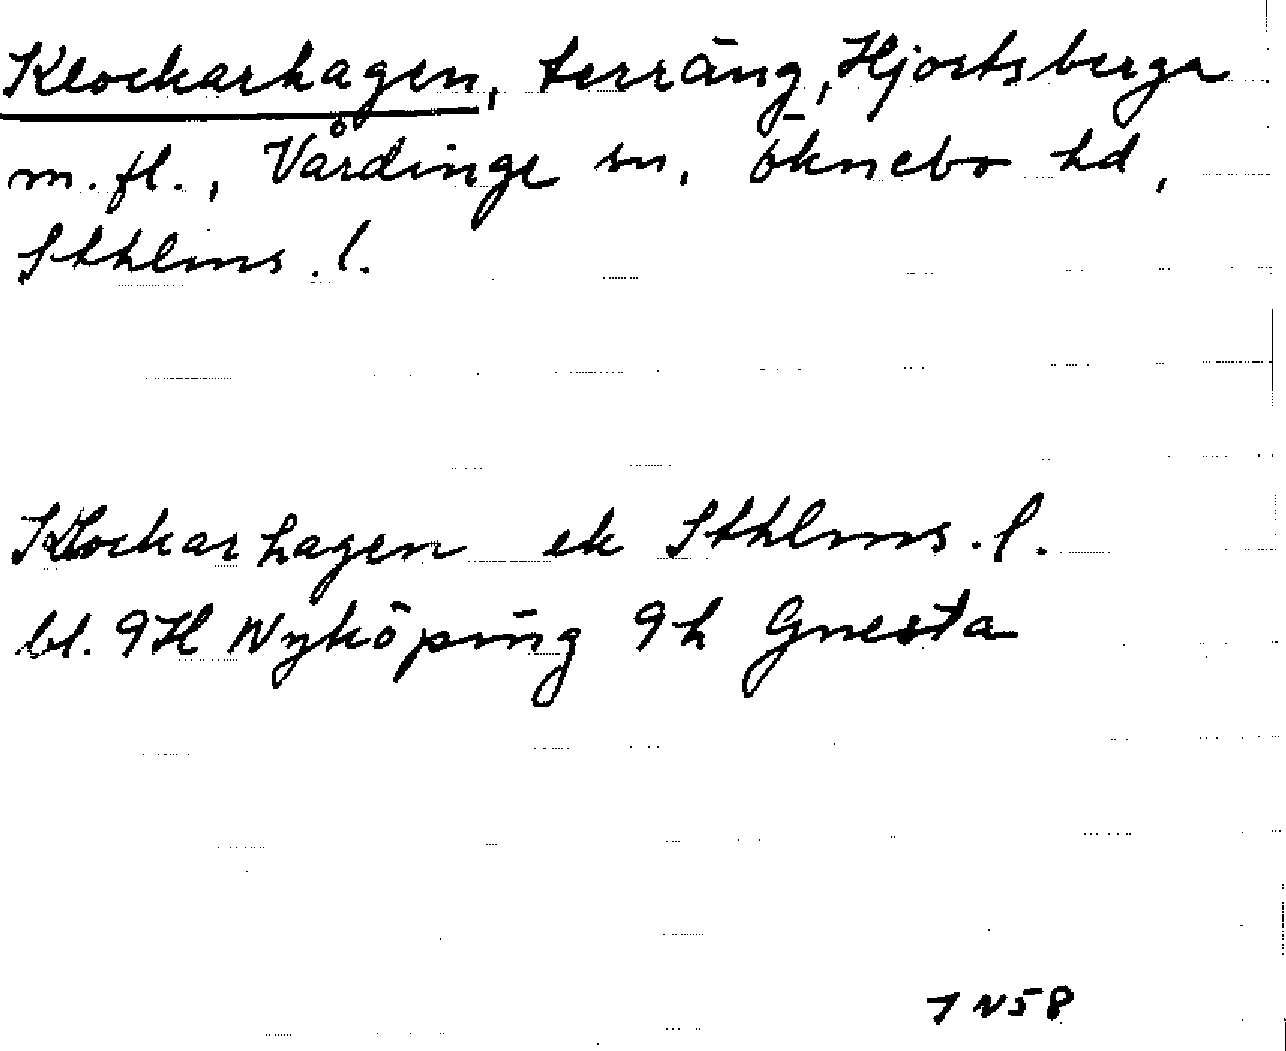 Klockarhagen, terräng, Hjortsberga
m. fl., Vårdinge sn, Öknebo hd,
Sthlms. l.
Klockarhagen ek Sthlms. l.
bl. 9H Nyköping 9h Gnesta
7 N 58